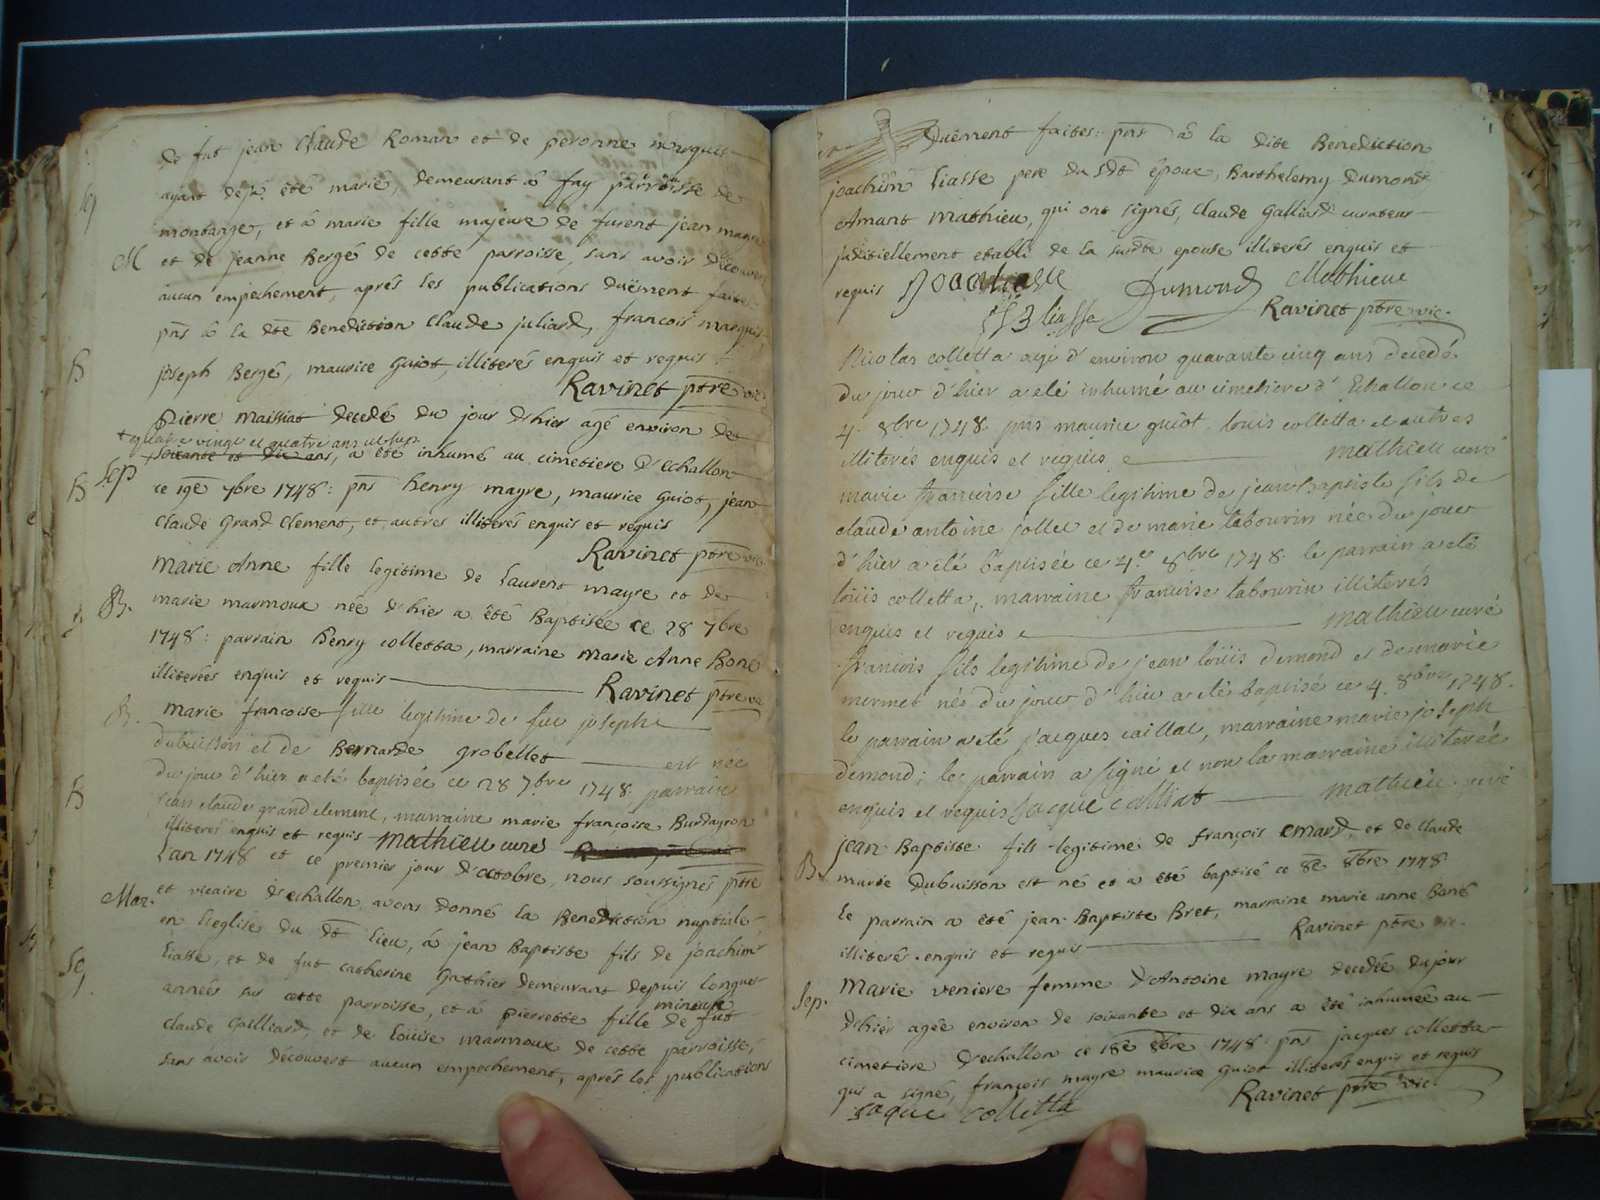 de fut jean Claude Roman et de peronne marquis
ayant déja été marié, demeurant à fay parroisse de
montange, et à marie fille majeure de furent jean mayre
M et de jeanne Bergé de cette parroisse, sans avoir découvert
aucun empechement, aprés les publications duëment faites
pns à la dte Benediction Claude juliard, françois marquis,
joseph Bergé, maurice Guiot, illiterés enquis et requis
Ravinet ptre vic.
pierre maissiat decedé du jour d'hier agé environ de
+ quatre vingt et quatre ans
Sep soixante et dix ans, a été inhumé au cimetiere d'echallon
ce 19e 7bre 1748: pns henry mayre, maurice Guiot, jean
Claude Grand Clement, et autres illiterés enquis et requis
Ravinet ptre vic.
marie Anne fille legitime de Laurent mayre et de
B. marie marmoux née d'hier a été Baptisée ce 28 7bre
1748: parrain henry colletta, marraine marie Anne Boné
illiterées enquis et requis Ravinet ptre vic
B. marie francoise fille legitime de feu joseph
dubuisson et de Bernarde Grobellet est née
du jour d'hier a eté baptisée ce 28 7bre 1748 parrain
jean claude grand clement, marraine marie françoise Burdayron
illiteres enquis et requis mathieu curé
L'an 1748 et ce premier jour d'octobre, nous soussignés ptre
Mar. et vicaire d'echallon avons donné la Benediction nuptiale
en L'eglise du dt lieu, à jean Baptiste fils de joachim
liasse, et de fut catherine Gathier demeurant depuis longues
années sur cette parroisse, et à pierrette fille mineure de fut
Claude Gailliard, et de Louise marmoux de cette parroisse,
sans avoir découvert aucun empechement, aprés les publications
Duëment faites: pns à la dite Benediction
joachim Liasse pere du sdt époux, Barthelemy dumond
Amant mathieu, qui ont signés, Claude Galliard curateur
juditiellement etabli de la susdte epouse illiterés enquis et
requis Joachi liasse Dumond Mathieu
JB liasse Ravinet ptre vic.
Nicolas colletta agé d'environ quarante cinq ans decedé
du jour d'hier a eté inhumé au cimetiere d'Echallon ce
4. 8bre 1748. pns maurice guiot, louis colletta et autres
illiterés enquis et requis mathieu curé
marie francoise fille legitime de jean baptiste fils de
claude antoine jollet et de marie tabourin née du jour
d'hier a eté baptisée ce 4e 8bre 1748 le parrain a eté
loüis colletta, marraine francoise tabourin illiterés
enquis et requis mathieu curé
francois fils legitime de jean loüis demond et de marie
mermet nés du jour d'hier a eté baptisé ce 4. 8bre 1748.
le parrain a eté jacques caillat, marraine marie joseph
demond; le parrain a signé et non la marraine illiterée
enquis et requis Jacque Calliat mathieu curé
jean Baptiste fils legitime de françois emard, et de claude
B. marie Dubuisson est né et a été baptisé ce 8e 8bre 1748
le parrain a été jean Baptiste Bret, marraine marie anne Boné
illiterés enquis et requis Ravinet ptre vic.
Marie veniere femme d'Antoine mayre decedée du jour
Sep. d'hier agée environ de soixante et dix ans a été inhumée au
cimetiere d'echallon ce 18e 8bre 1748: pns jacques colletta
qui a signé, françois mayre maurice Guiot illiterés enquis et requis
jaque colletta Ravinet ptre vic.